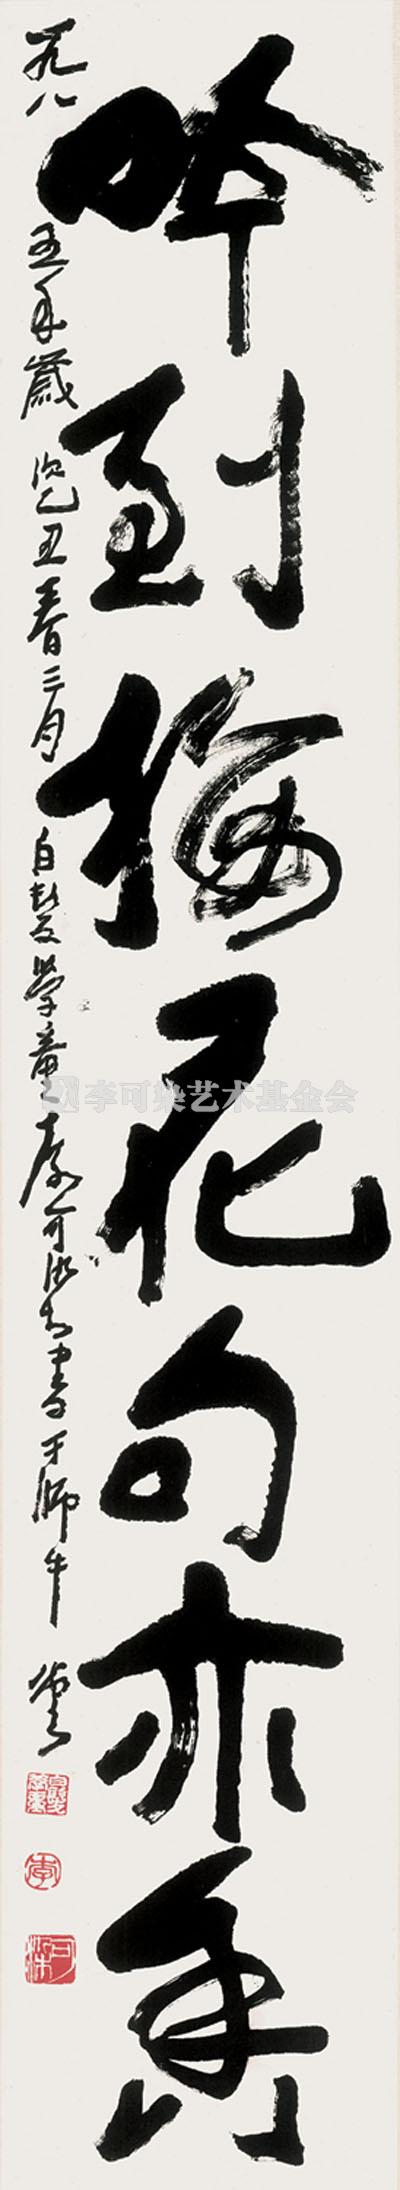 吟到梅花句亦香
一九八五年歲次乙丑春三月白髮學童李可染書于師牛堂
白髮學童
李
可染
李可染艺术基金会